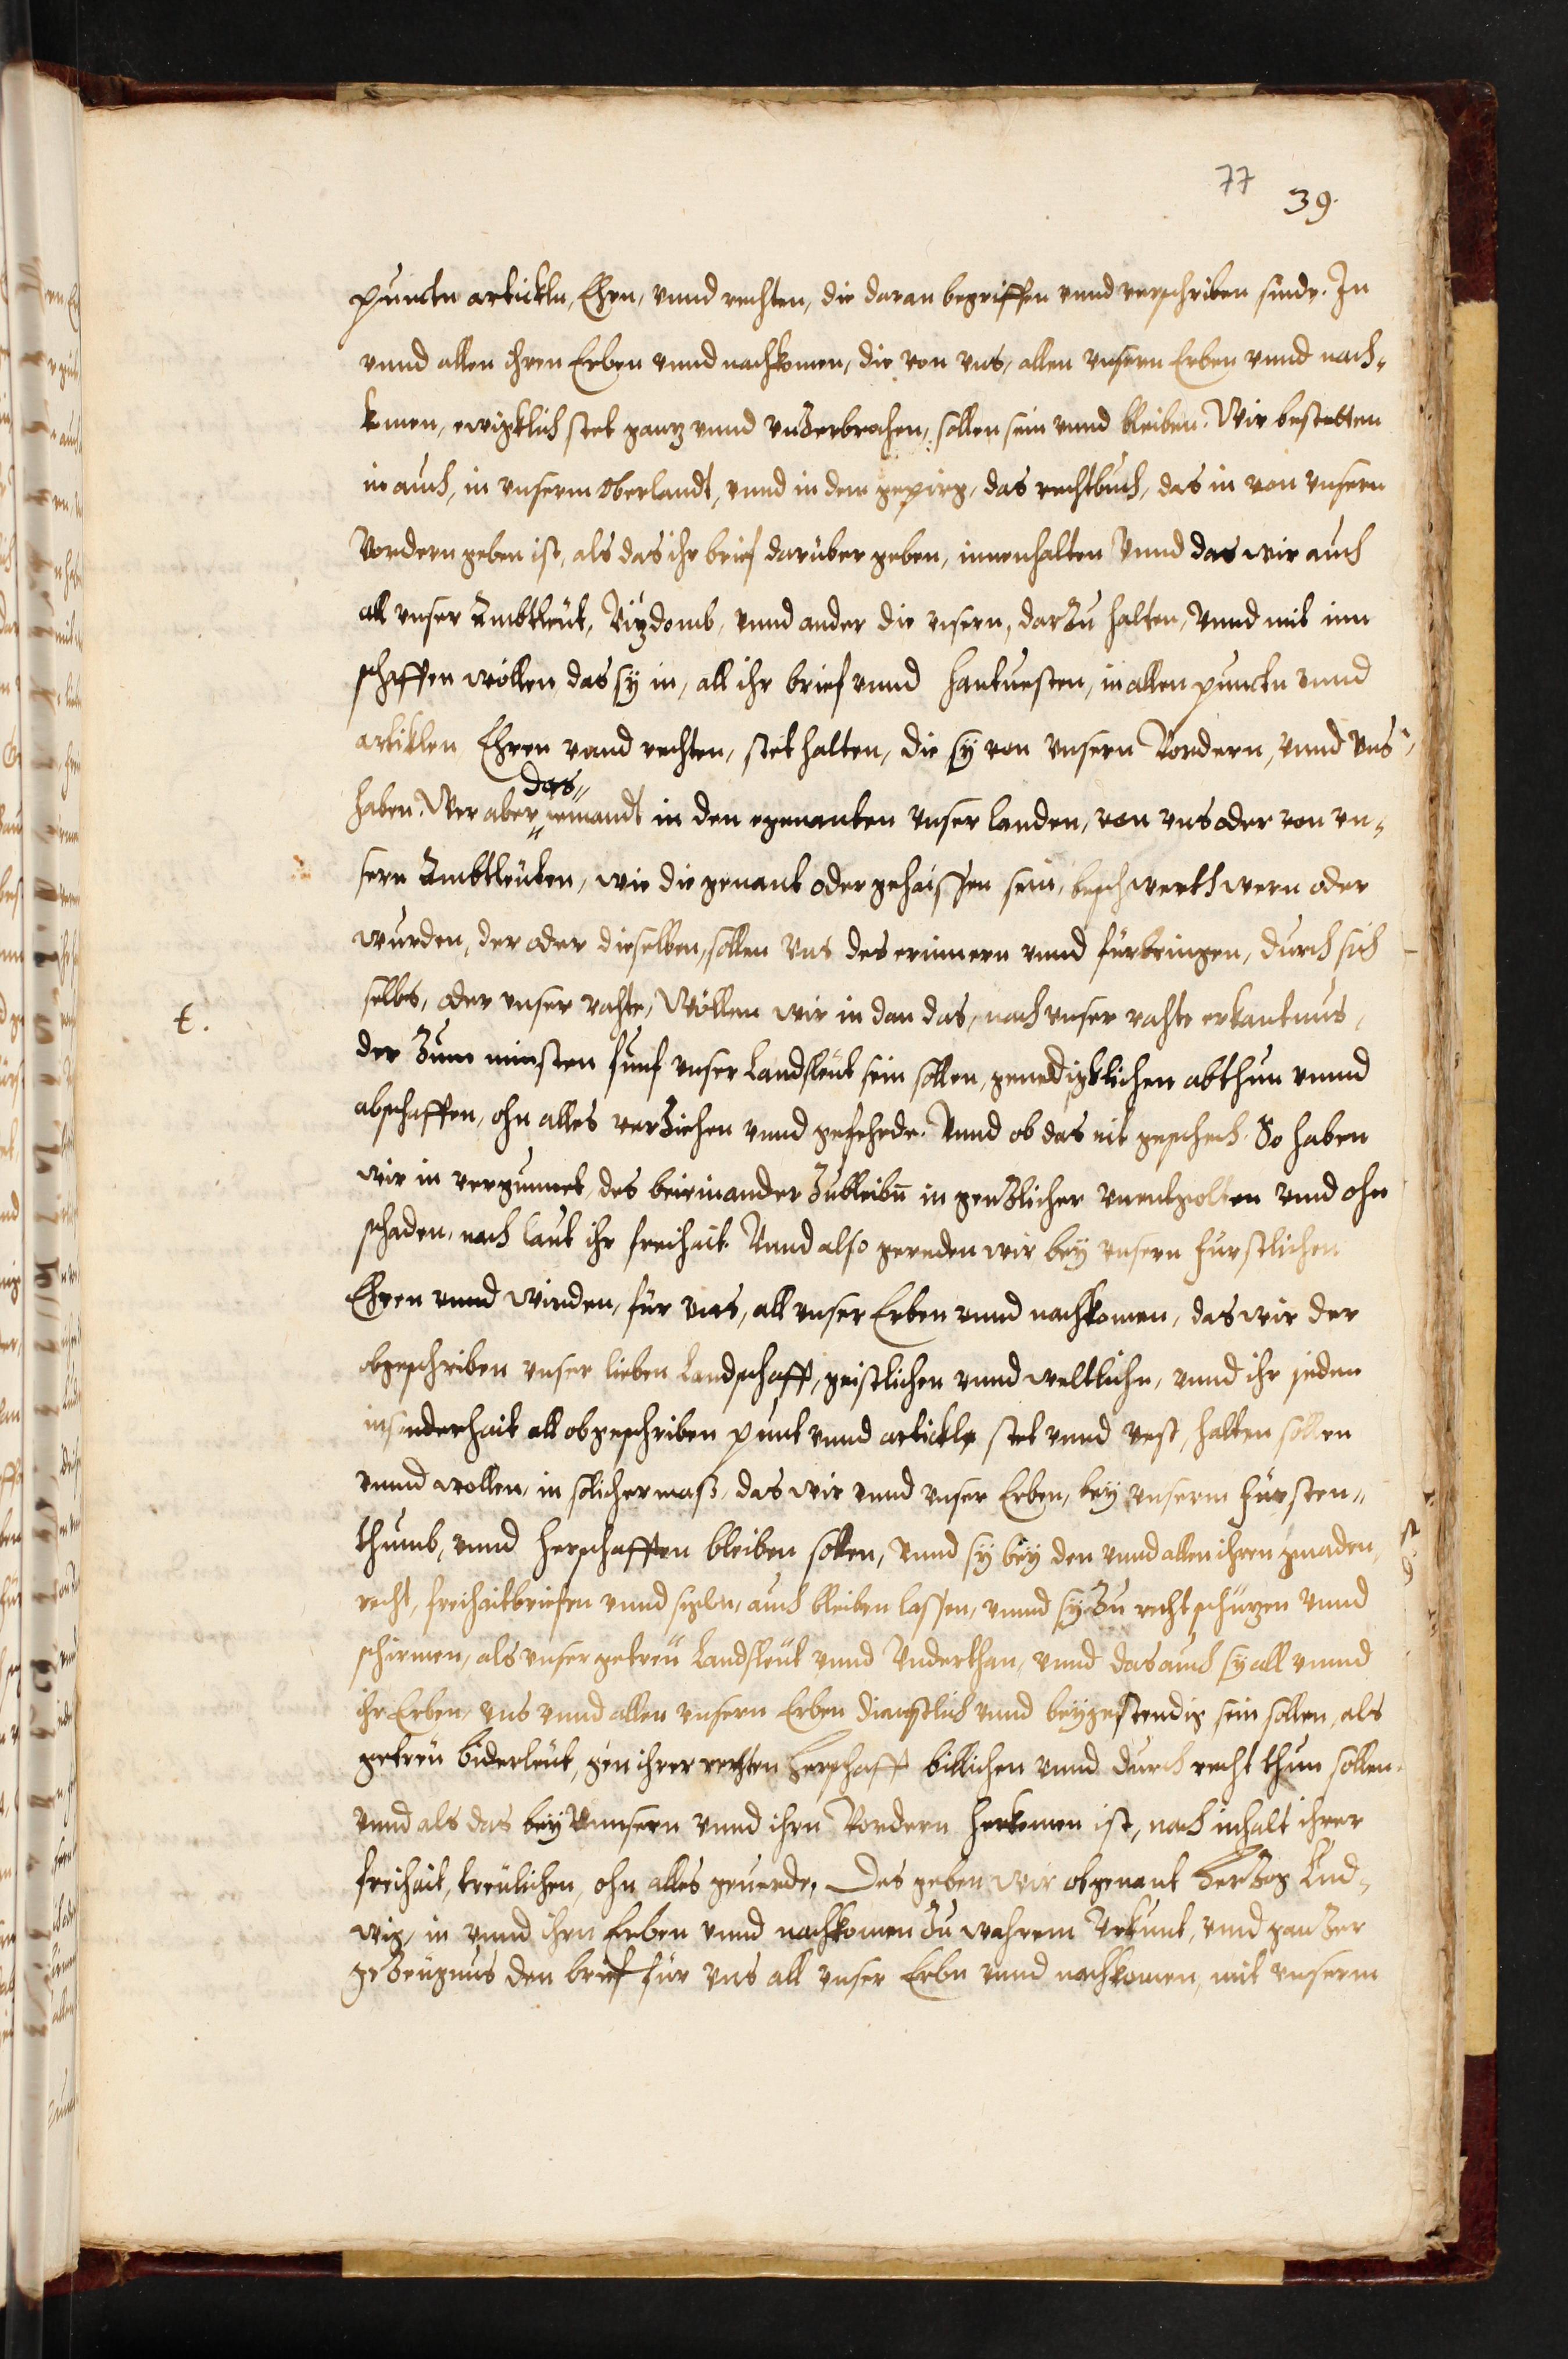 77
39.
puncten artickln, Ehrn, vnnd rechten, die daran begriffen vnnd verschriben sinde. In
vnnd allen ihren Erben vnnd nachkomen, die von vns, allen vnsern Erben vnnd nach-
komen, ewigklich stet gantz vnnd vnzerbrochen, sollen sein vnnd bleiben. Wir bestetten
in auch, in vnserm Oberlandt, vnnd in dem gepirg, das rechtbuch, das in von vnsern
Vordern geben ist, als das ihr brief darüber geben, innenhalten Vnnd das wir auch
all vnser Ambtleüt, Vizdomb, vnnd ander die vnsern, darzu halten, Vnnd mit inn
schaffen wöllen das sy in, all ihr brief vnnd hantuesten, in allen puncten vnnd
artiklen Ehren vnnd rechten, stet halten, die sy von vnsern Vordern, vnnd vns,
haben. Wer aber das iemandt in den egenanten vnser landen, von vns oder von vn-
sern Ambtleüten, wie die genant oder gehaissen sein, beschwerth wern oder
wurden, der oder dieselben, sollen vns des erinnern vnnd fürbringen, durch sich
selbs, oder vnser rahte, Wöllen wir in dan das, nach vnser rahte erkantnus,
t.
der zum minsten funf vnser Landsleüt sein sollen, genedigklichen abthun vnnd
abschaffen, ohn alles verziehen vnnd gefehrde. Vnnd ob das nit geschech. So haben
wir in vergunnet, des beieinander zubleibn in genzlicher vnentgolten vnd ohn
schaden, nach laut ihr freihait. Vnnd also gereden wir bey vnsern fürstlichen
Ehren vnnd wirden, für vns, all vnser Erben vnnd nachkomen, das wir der
obgeschriben vnser lieben Landschafft, geistlichen vnnd weltlichn, vnnd ihr jedem
insonderhait all obgeschriben punt vnnd artickle stet vnnd vest, halten sollen
vnnd wollen, in solicher mass, das wir vnnd vnser Erben, bey vnserm Fürsten-
thumb, vnnd herschafften bleiben sollen, Vnnd sy bey den vnnd allen ihren gnaden,
recht, freihaitbriefen vnnd siglen, auch bleiben lassen, vnnd sy zu recht schützen vnnd
schirmen, als vnser getreü Landsleüt vnnd Vnderthan, vnnd das auch sy all vnnd
ihr Erben, vns vnnd allen vnsern Erben dienstlich vnnd beygestendig sein sollen, als
getreü biderleüt, gen ihrer rechten herschafft billichen vnnd durch recht thun sollen.
vnnd als das bey vnnsern vnnd ihrn Vordern herkomen ist, nach inhalt ihrer
freihait, treülichen, ohn alles geuerde. Des geben wir obgenant Herzog Lud-
wig, in vnnd ihrn Erben vnnd nachkomen zu wahrem Vrkunt, vnd ganzer
gezeügnus den brief für vns all vnser Erbn vnnd nachkomen, mit vnserm